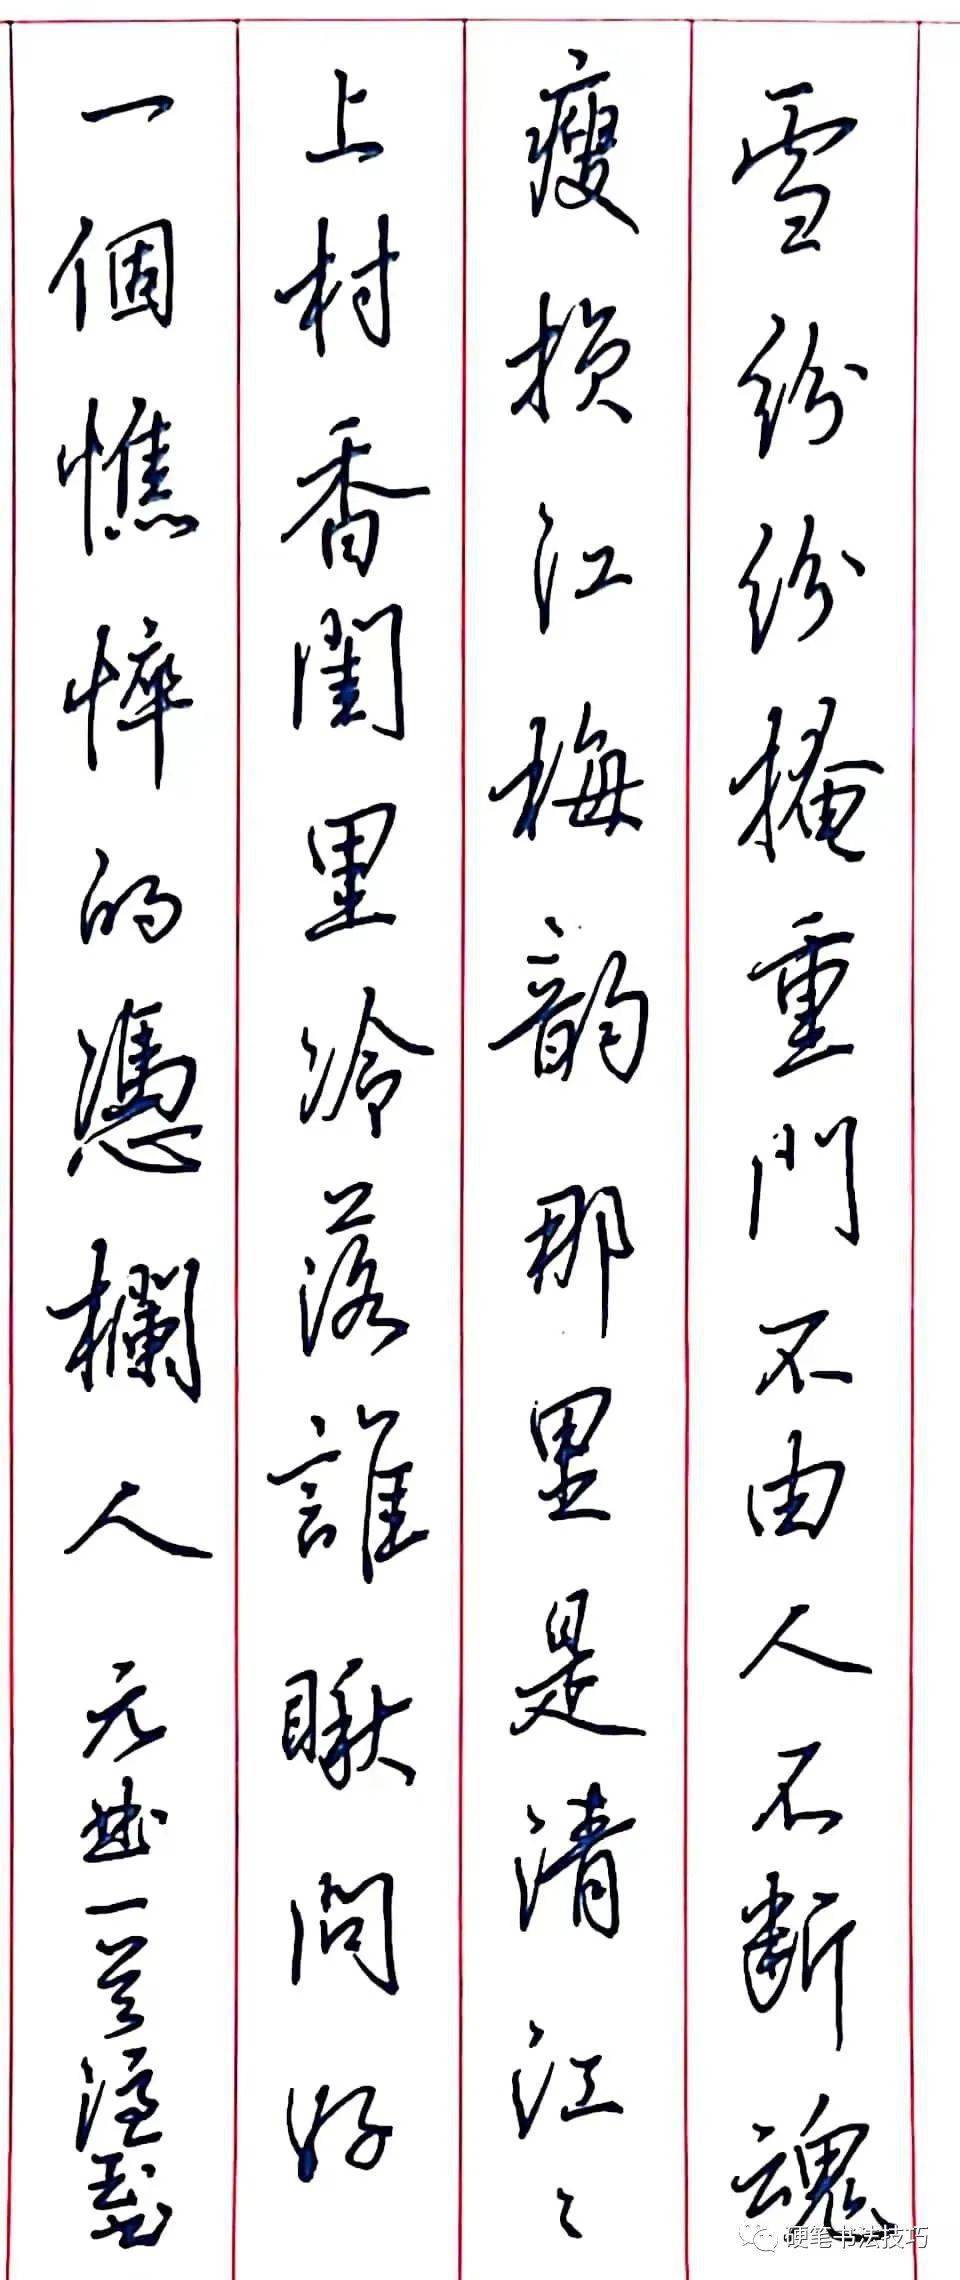 雪纷纷掩重門不由人不断魂
瘦损江梅韵那里是清江〻
上村香閨里冷落誰瞅問好
一個憔悴的憑欄人 元曲一首
硬笔书法技巧